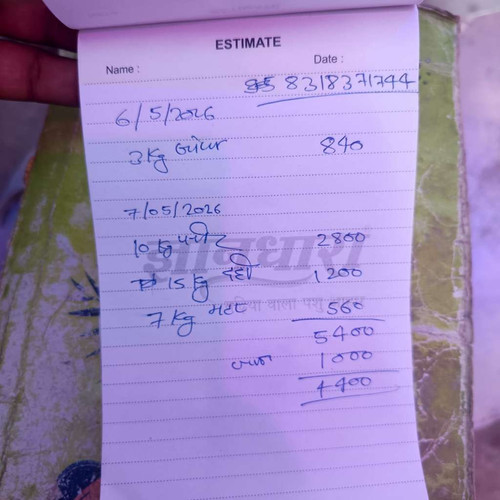 ESTIMATE
Name :
Date :
8318371744
6/5/2026
3 Kg 840
7/05/2026
10 Kg पनीर 2800
15 Kg दही 1200
7 Kg मटर 560
5400
जमा 1000
4400
ज्ञानधारा